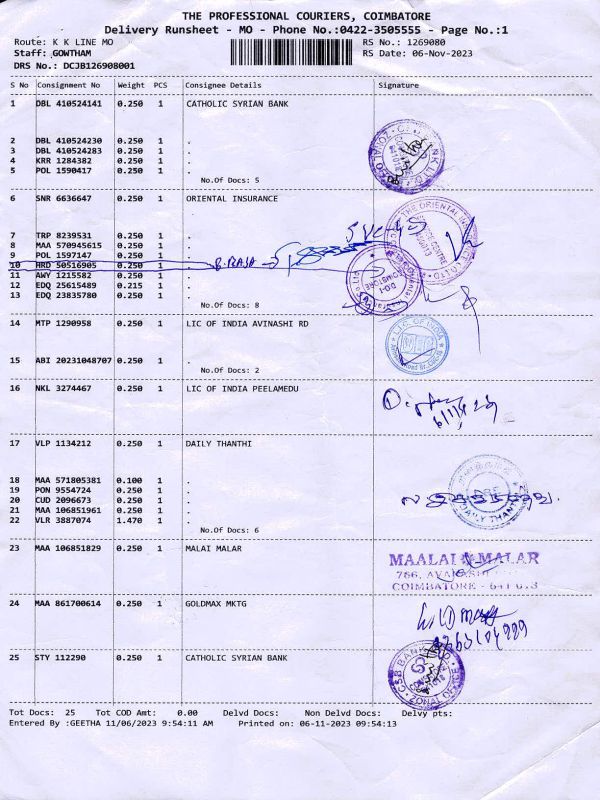 THE PROFESSIONAL COURIERS, COIMBATORE
Delivery Runsheet - MO - Phone No.:0422-3505555 - Page No.:1
Route: K K LINE MO RS No.: 1269080
Staff: GOWTHAM RS Date: 06-Nov-2023
DRS No.: DCJB126908001
S No Consignment No Weight PCS Consignee Details Signature
1 DBL 410524141 0.250 1 CATHOLIC SYRIAN BANK
2 DBL 410524230 0.250 1 .
3 DBL 410524283 0.250 1 .
4 KRR 1284382 0.250 1 .
5 POL 1590417 0.250 1 .
No.Of Docs: 5
6 SNR 6636647 0.250 1 ORIENTAL INSURANCE
7 TRP 8239531 0.250 1 .
8 MAA 570945615 0.250 1 .
9 POL 1597147 0.250 1 .
10 HRD 50516905 0.250 1 .
11 AWY 1215582 0.250 1 .
12 EDQ 25615489 0.215 1 .
13 EDQ 23835780 0.250 1 .
No.Of Docs: 8
14 MTP 1290958 0.250 1 LIC OF INDIA AVINASHI RD
L.I.C. OF INDIA
15 ABI 20231048707 0.250 1 .
No.Of Docs: 2
16 NKL 3274467 0.250 1 LIC OF INDIA PEELAMEDU
17 VLP 1134212 0.250 1 DAILY THANTHI
18 MAA 571805381 0.100 1 .
19 PON 9554724 0.250 1 .
20 CUD 2096673 0.250 1 .
21 MAA 106851961 0.250 1 .
22 VLR 3887074 1.470 1 .
DAILY THANTHI
No.Of Docs: 6
23 MAA 106851829 0.250 1 MALAI MALAR
MAALAI MALAR
COIMBATORE
24 MAA 861700614 0.250 1 GOLDMAX MKTG
25 STY 112290 0.250 1 CATHOLIC SYRIAN BANK
Tot Docs: 25 Tot COD Amt: 0.00 Delvd Docs: Non Delvd Docs: Delvy pts:
Entered By :GEETHA 11/06/2023 9:54:11 AM Printed on: 06-11-2023 09:54:13